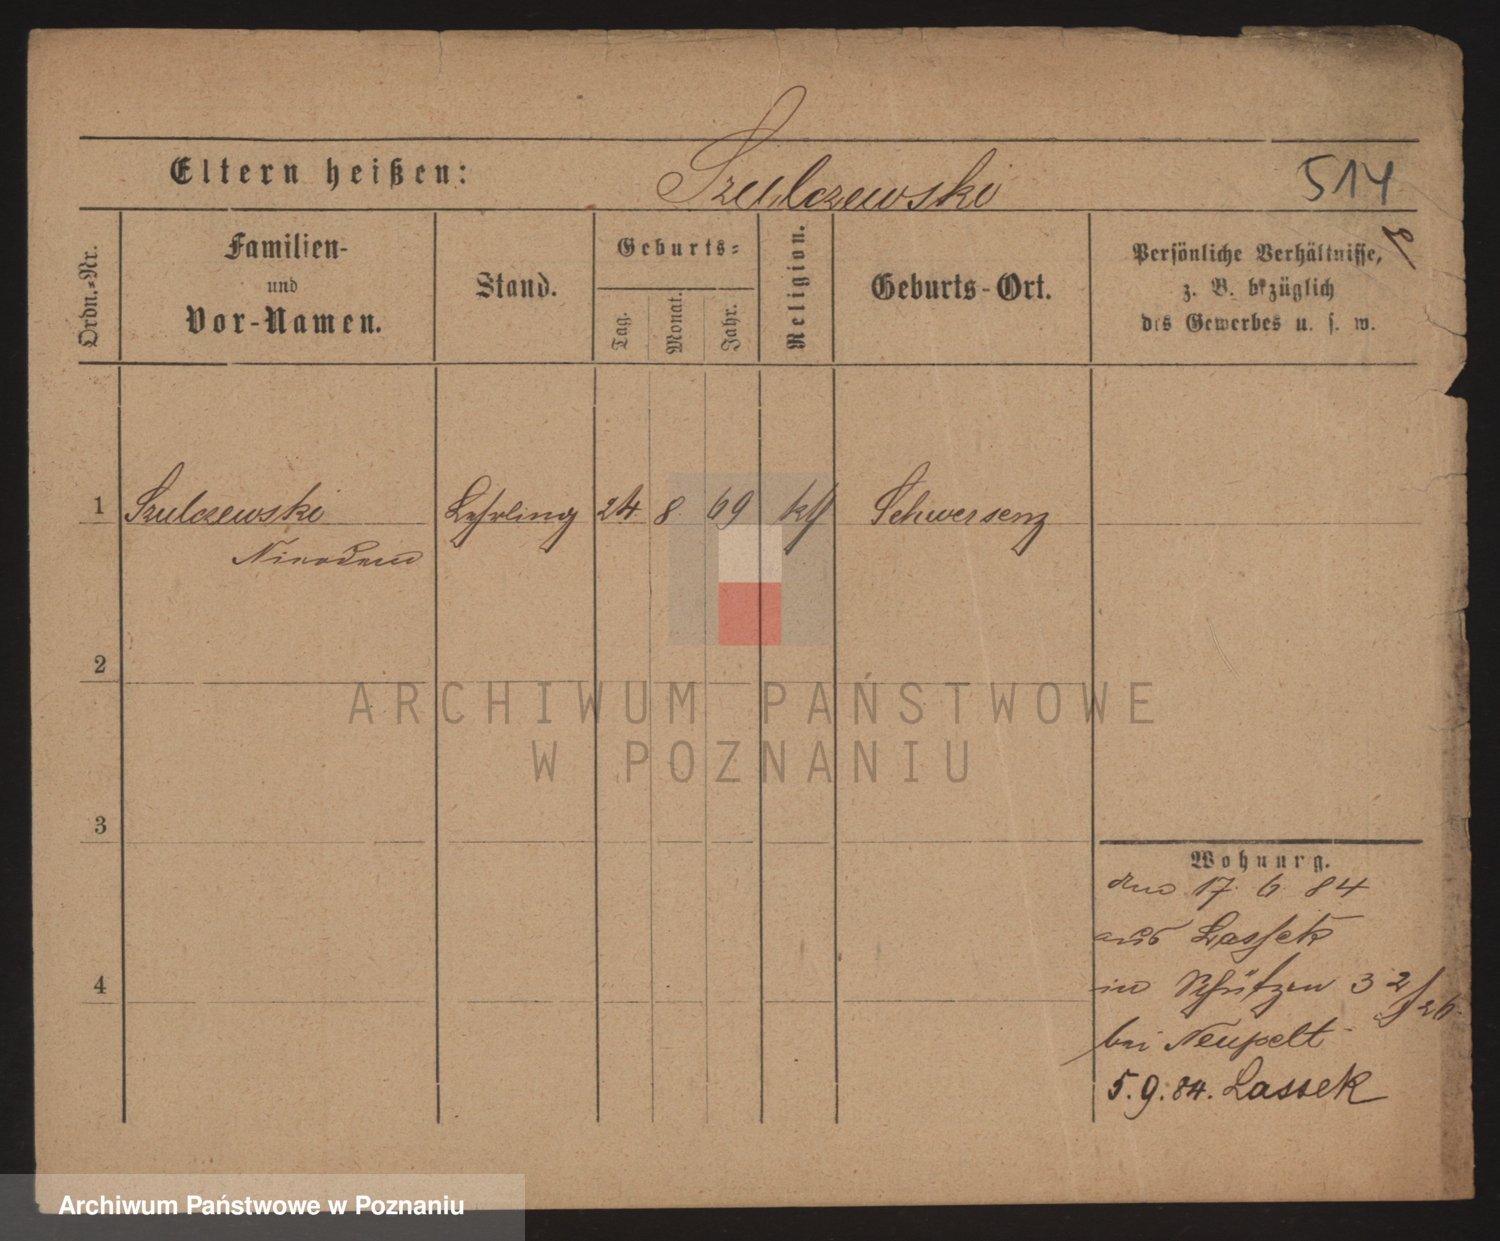 Eltern heißen:
Szulczewski
514
Ordn.-Nr.
Familien-
und
Vor-Namen.
Stand.
Geburts-
Tag.
Monat.
Jahr.
Religion.
Geburts-Ort.
Persönliche Verhältnisse,
z. B. bezüglich
des Gewerbes u. s. w.
1 Szulczewski Lehrling 24 8 69 kth Schwersenz
Nicodem
2
3
4
Wohnung.
den 17. 6 84
aus Lassek
in Schützen 32/26.
bei Neupelt
5.9.84. Lassek
ARCHIWUM PAŃSTWOWE
W POZNANIU
Archiwum Państwowe w Poznaniu